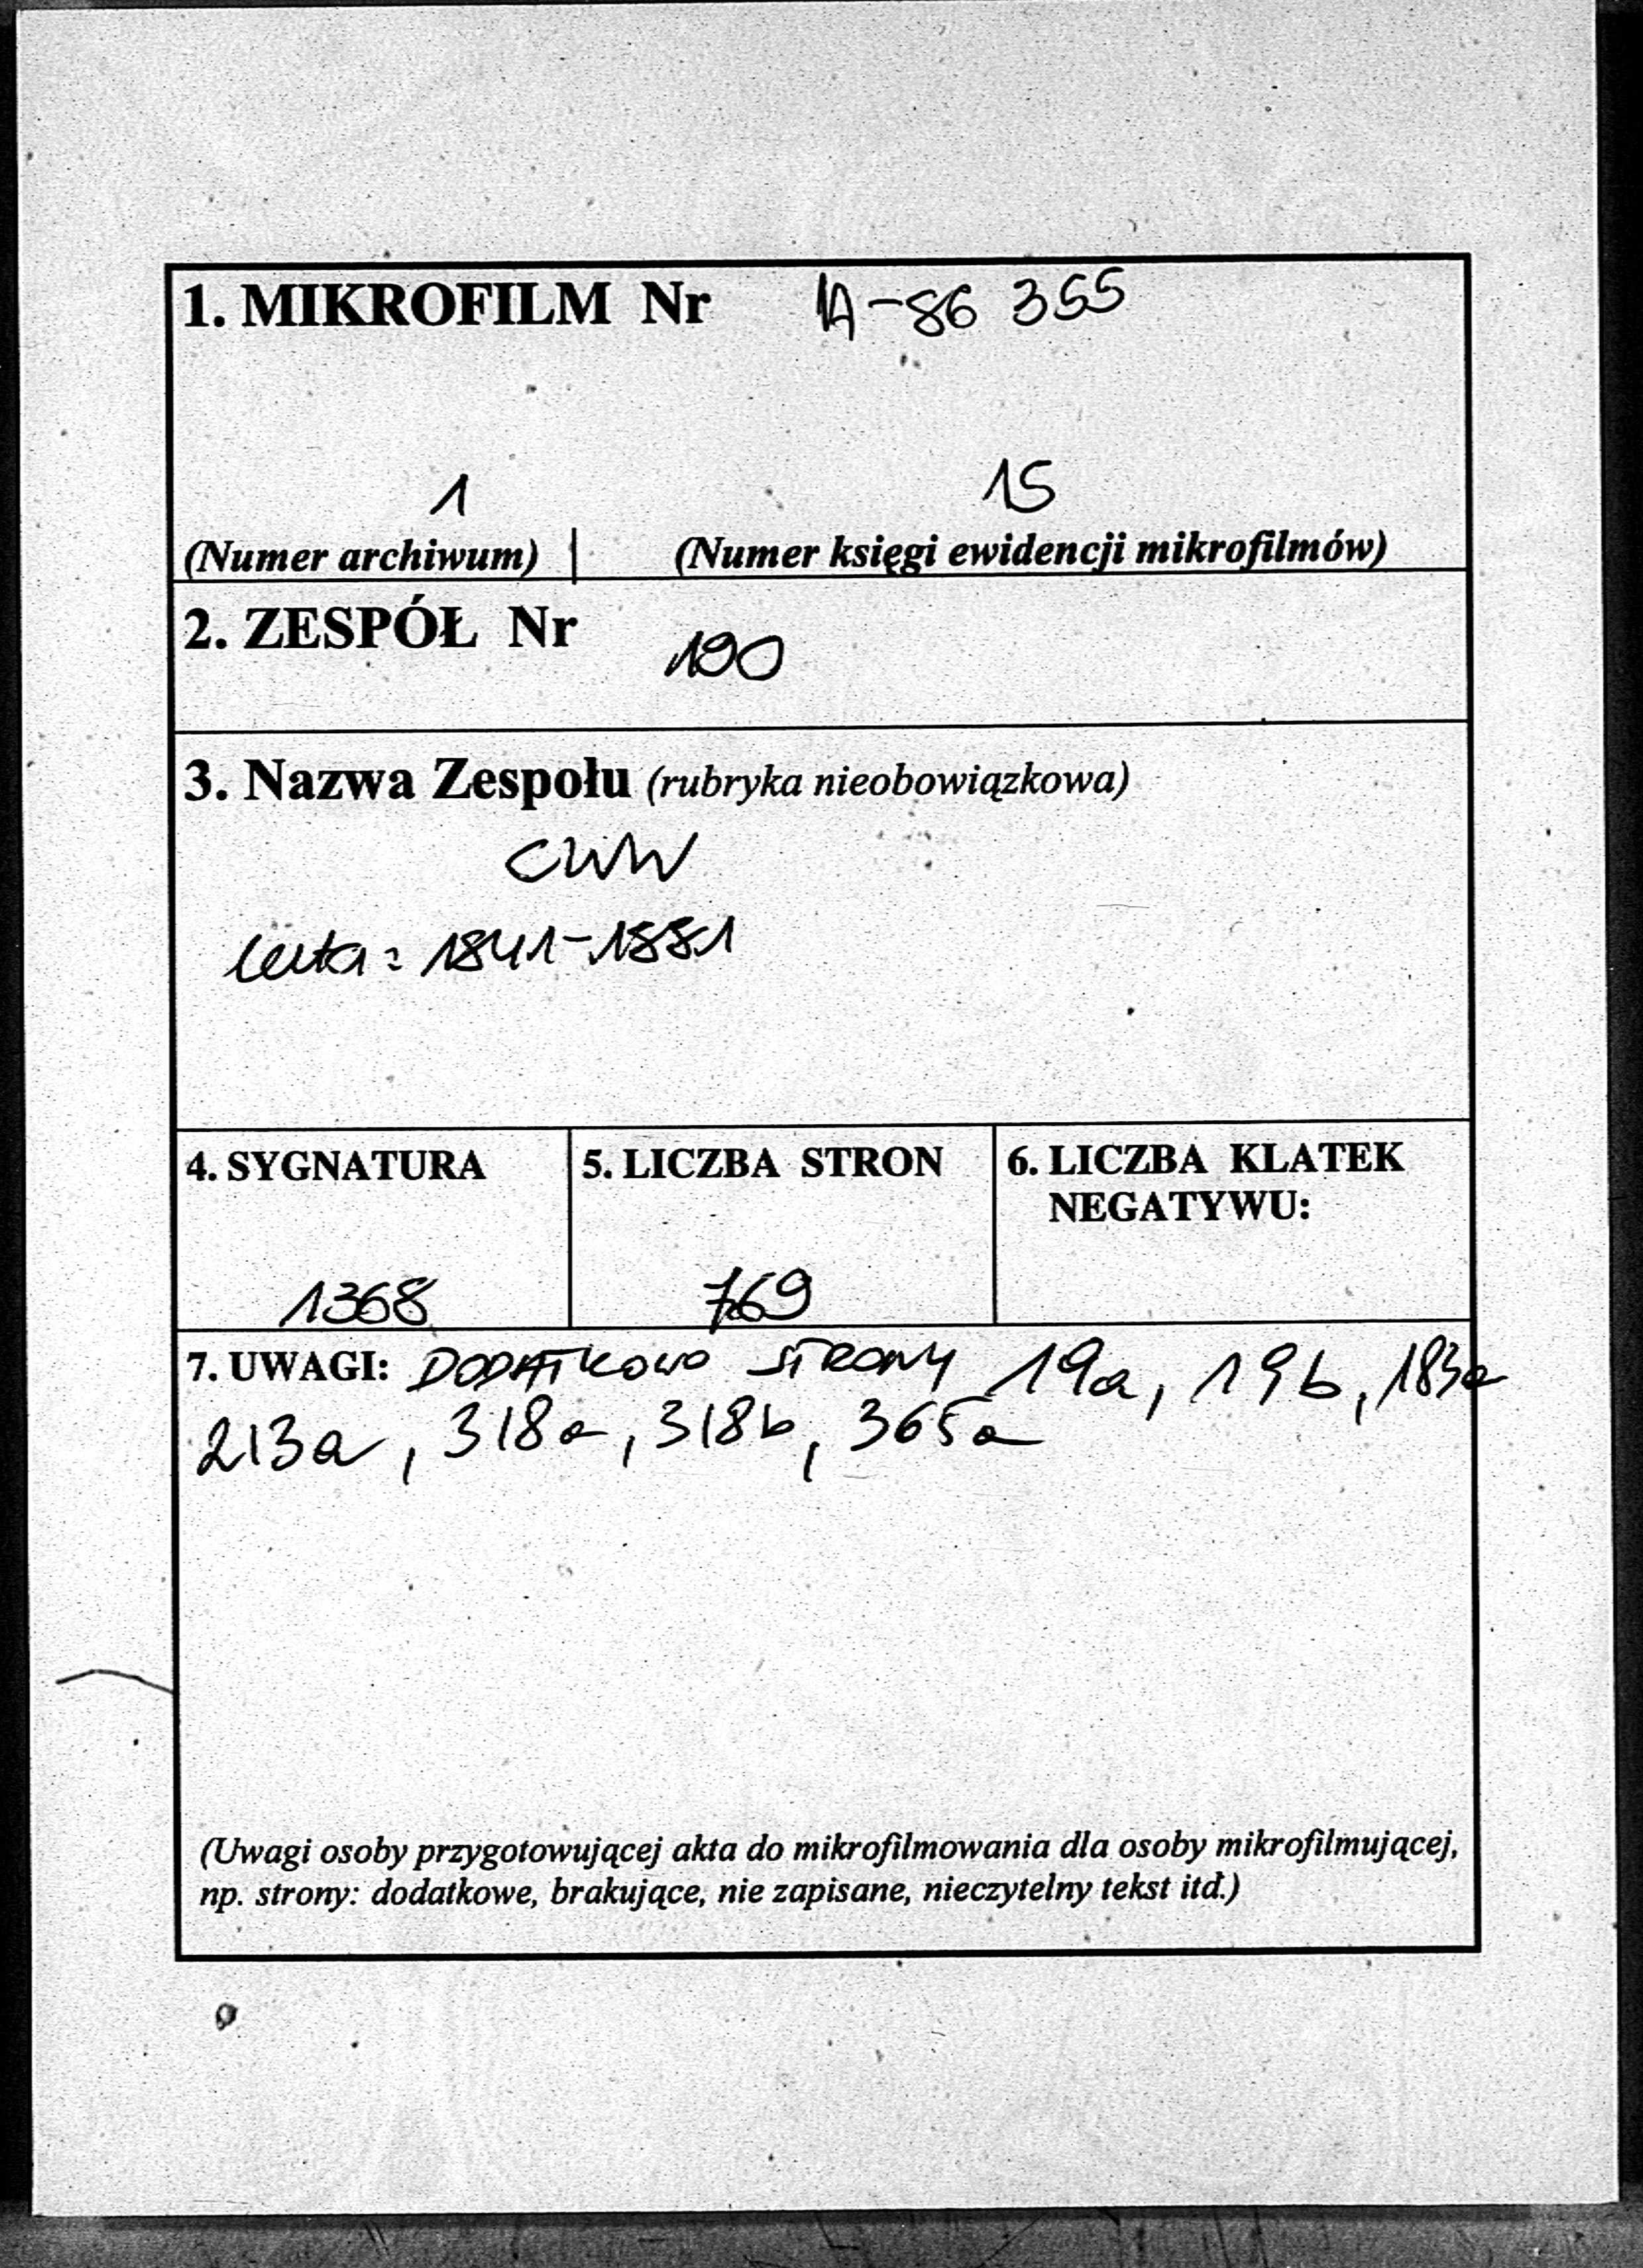 1. MIKROFILM Nr IA-86 355
1 15
(Numer archiwum) | (Numer księgi ewidencji mikrofilmów)
2. ZESPÓŁ Nr 190
3. Nazwa Zespołu (rubryka nieobowiązkowa)
CWW
lata: 1841-1881
4. SYGNATURA 5. LICZBA STRON 6. LICZBA KLATEK
NEGATYWU:
1368 769
7. UWAGI: DODATKOWO STRONY 19a, 19b, 183a
213a, 318a, 318b, 365a
(Uwagi osoby przygotowującej akta do mikrofilmowania dla osoby mikrofilmującej,
np. strony: dodatkowe, brakujące, nie zapisane, nieczytelny tekst itd.)